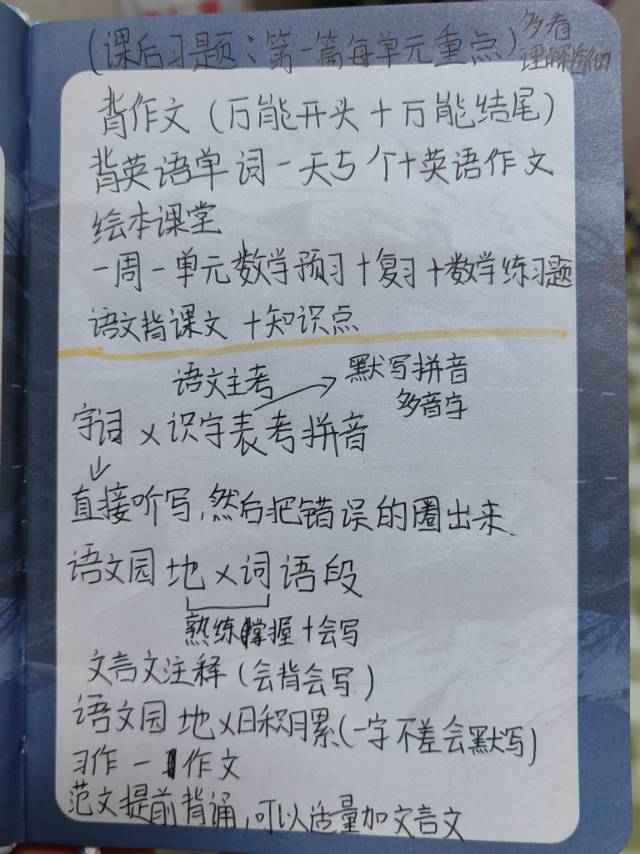 (课后习题:第一篇每单元重点)多看
理解
背作文(万能开头+万能结尾)
背英语单词一天5个+英语作文
绘本课堂
一周一单元数学预习+复习+数学练习题
语文背课文+知识点
语文主考
默写拼音
多音字
字词×识字表考拼音
直接听写,然后把错误的圈出来
语文园地×词语段
熟练掌握+会写
文言文注释(会背会写)
语文园地×日积月累(一字不差会默写)
习作一作文
范文提前背诵,可以适量加文言文